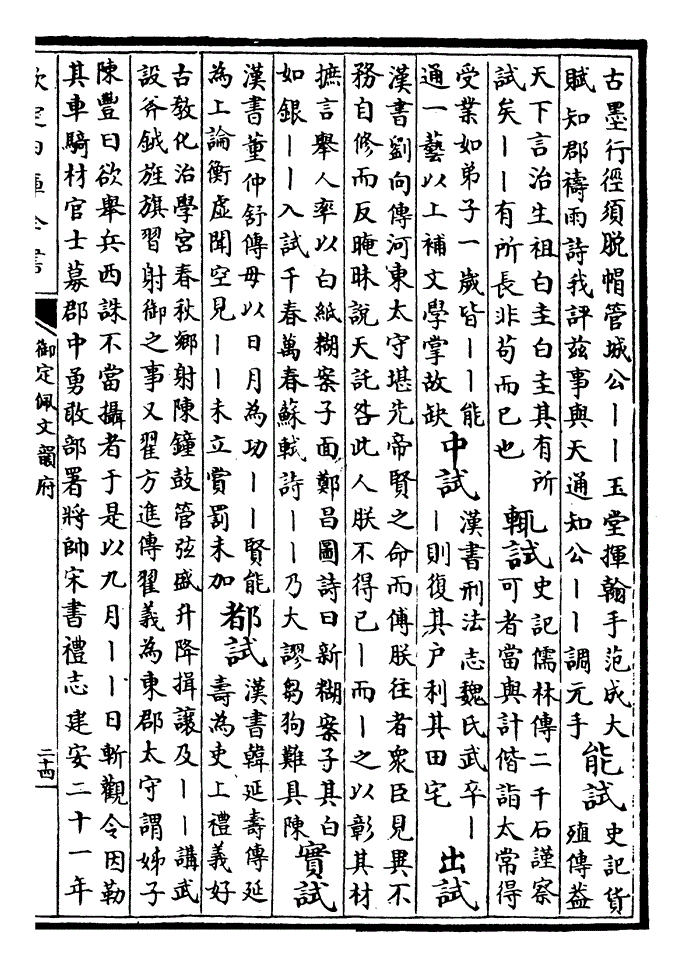 古墨行徑須脫帽管城公丨丨玉堂揮翰手范成大
賦知郡禱雨詩我評茲事與天通知公丨丨調元手
能試
史記貨
殖傳蓋
天下言治生祖白圭白圭其有所
試矣丨丨有所長非苟而已也
輒試
史記儒林傳二千石謹察
可者當與計偕詣太常得
受業如弟子一歲皆丨丨能
通一藝以上補文學掌故缺
中試
漢書刑法志魏氏武卒丨
丨則復其户利其田宅
出試
漢書劉向傳河東太守堪先帝賢之命而傅朕往者衆臣見異不
務自修而反晻昧說天託咎此人朕不得已丨而丨之以彰其材
摭言舉人率以白紙糊案子面鄭昌圖詩曰新糊案子其白
如銀丨丨入試千春萬春蘇軾詩丨丨乃大謬芻狗難具陳
實試
漢書董仲舒傳毋以日月為功丨丨賢能
為上論衡虛聞空見丨丨未立賞罰未加
都試
漢書韓延壽傳延
壽為史上禮義好
古教化治學宮春秋鄉射陳鐘鼓管弦盛升降揖讓及丨丨講武
設斧鉞旌旗習射御之事又翟方進傳翟義為東郡太守謂姊子
陳豐曰欲舉兵西誅不當攝者于是以九月丨丨日斬觀令因勒
其車騎材官士募郡中勇敢部署將帥宋書禮志建安二十一年
欽定四庫全書
御定佩文韻府
二十四